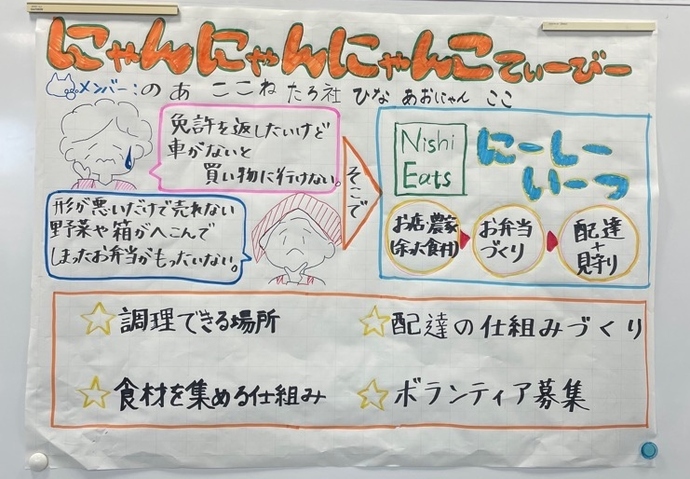 にゃんにゃんにゃんこてぃーびー
メンバー:の あ ここね たろ社 ひな あおにゃん ここ
免許を返したいけど
車がないと
買い物に行けない。
形が悪いだけで売れない
野菜や箱がへこんで
しまったお弁当がもったいない。
そこで
Nishi
Eats
にーしー
いーつ
お店・農家
(余った食材)
お弁当
づくり
配達
+
見守り
☆調理できる場所
☆配達の仕組みづくり
☆食材を集める仕組み
☆ボランティア募集